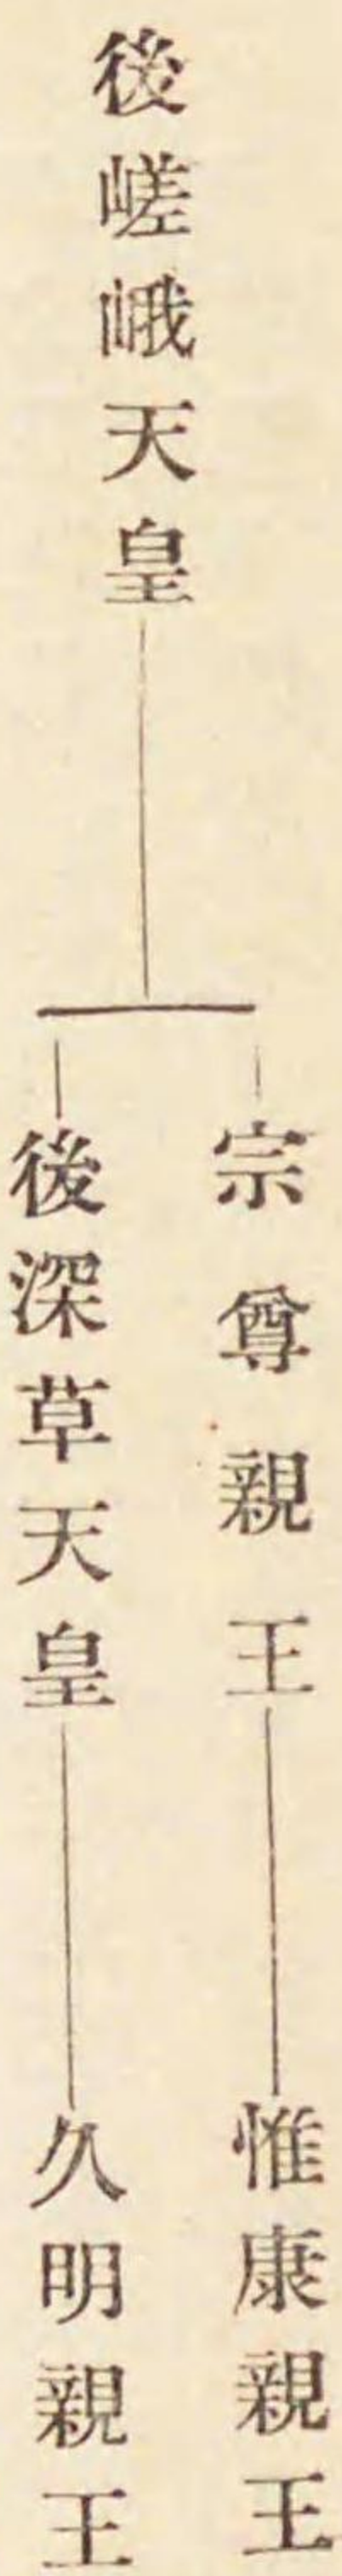 後嵯峨天皇
宗尊親王
惟康親王
後深草天皇
久明親王